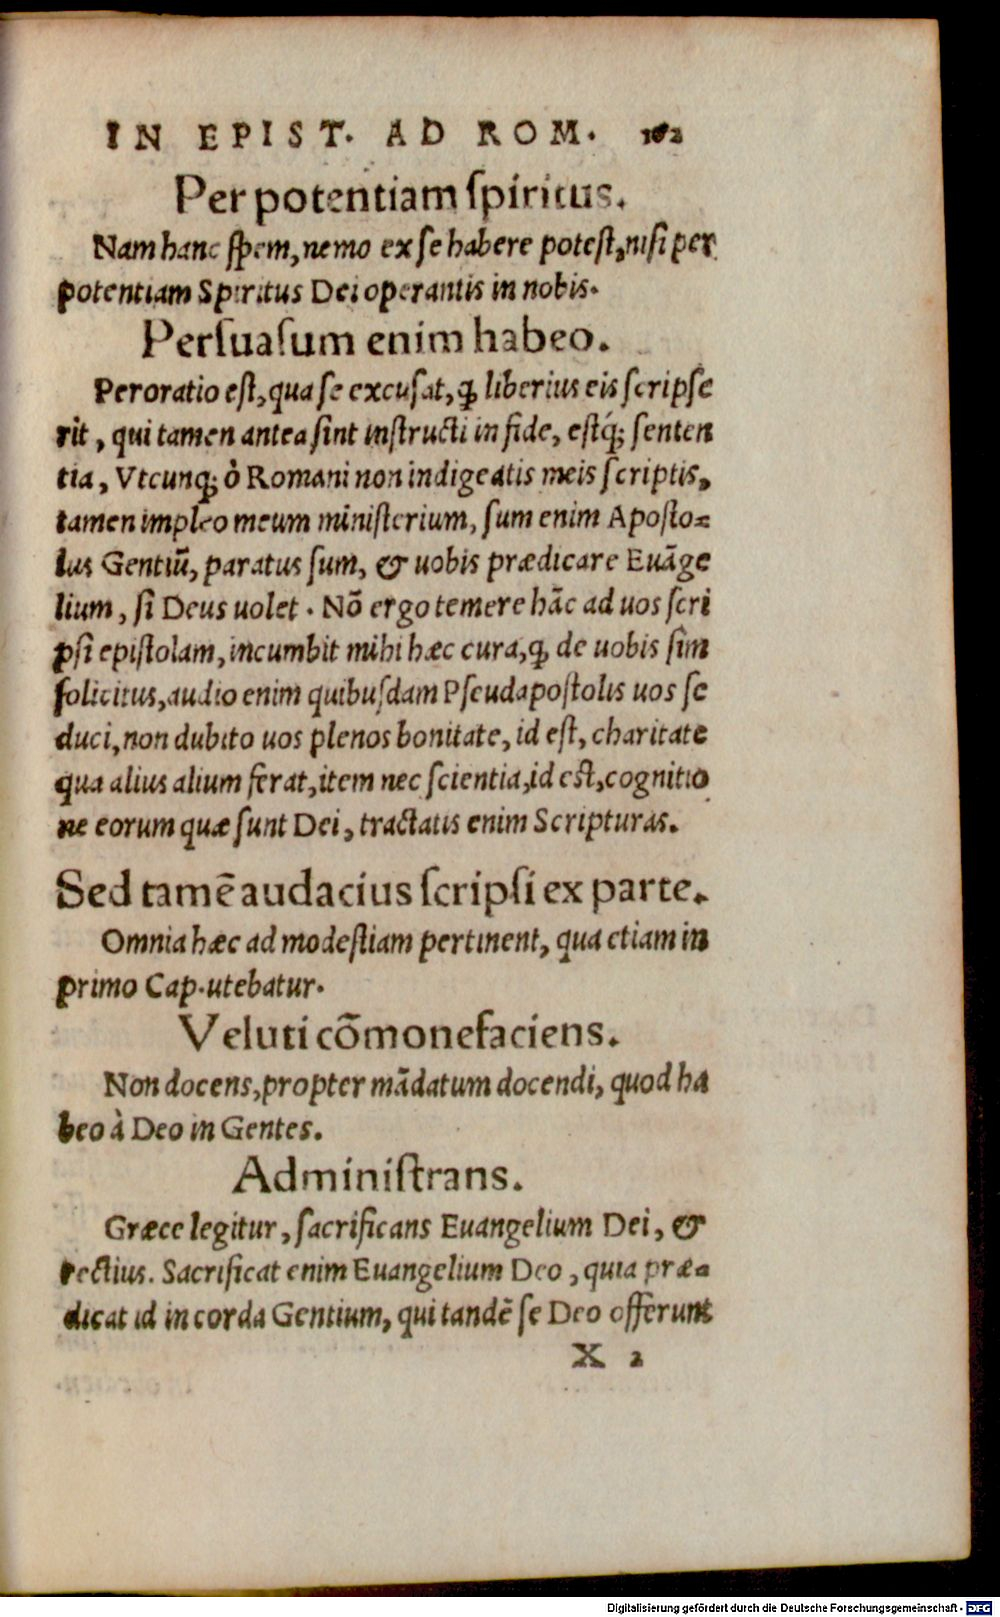 IN EPIST. AD ROM. 162
Per potentiam ſpiritus.
Nam hanc ſpem, nemo ex ſe habere poteſt, niſi per
potentiam Spiritus Dei operantis in nobis.
Perſuaſum enim habeo.
Peroratio eſt, qua ſe excuſat, ꝙ liberius eis ſcripſe
rit, qui tamen antea ſint inſtructi in fide, eſtq́; ſenten
tia, Vtcunq; ò Romani non indigeatis meis ſcriptis,
tamen impleo meum miniſterium, ſum enim Apoſto=
lus Gentiũ, paratus ſum, & uobis prædicare Euãge
lium, ſi Deus uolet. Nõ ergo temere hãc ad uos ſcri
pſi epiſtolam, incumbit mihi hæc cura, ꝙ de uobis ſim
ſolicitus, audio enim quibuſdam Pſeudapoſtolis uos ſe
duci, non dubito uos plenos bonitate, id eſt, charitate
qua alius alium ferat, item nec ſcientia, id eſt, cognitio
ne eorum quæ ſunt Dei, tractatis enim Scripturas.
Sed tamẽ audacius ſcripſi ex parte.
Omnia hæc ad modeſtiam pertinent, qua etiam in
primo Cap. utebatur.
Veluti cõmonefaciens.
Non docens, propter mãdatum docendi, quod ha
beo à Deo in Gentes.
Adminiſtrans.
Græce legitur, ſacrificans Euangelium Dei, &
rectius. Sacrificat enim Euangelium Deo, quia præ=
dicat id in corda Gentium, qui tandẽ ſe Deo offerunt
X 2
Digitalisierung gefördert durch die Deutsche Forschungsgemeinschaft - DFG